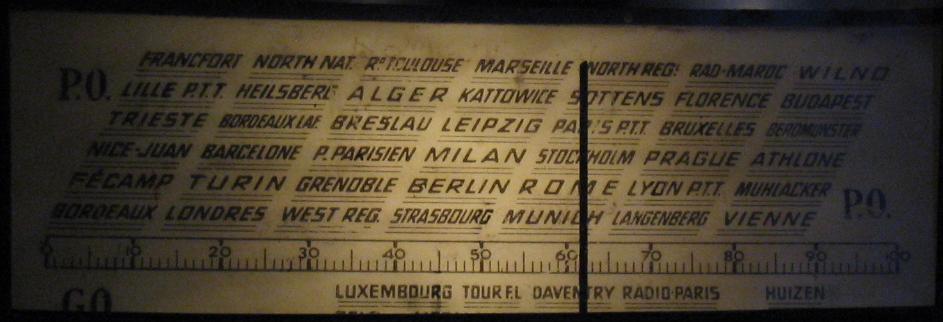 FRANCFORT NORTH NAT. Rº TOULOUSE MARSEILLE NORTH REG. RAD-MAROC WILNO
P.O. LILLE P.T.T. HEILSBERG ALGER KATTOWICE SOTTENS FLORENCE BUDAPEST
TRIESTE BORDEAUX LAF. BRESLAU LEIPZIG PARIS P.T.T. BRUXELLES BEROMUNSTER
NICE-JUAN BARCELONE P. PARISIEN MILAN STOCKHOLM PRAGUE ATHLONE
FÉCAMP TURIN GRENOBLE BERLIN ROME LYON P.T.T. MUHLACKER P.O.
BORDEAUX LONDRES WEST REG. STRASBOURG MUNICH LANGENBERG VIENNE
0 10 20 30 40 50 60 70 80 90 100
G.O. LUXEMBOURG TOUR E.L DAVENTRY RADIO-PARIS HUIZEN